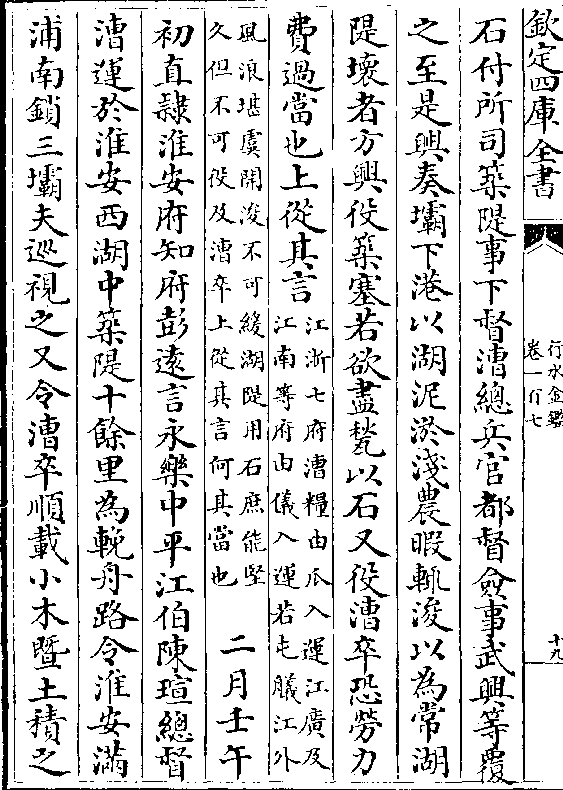 欽定四庫全書
行水金鑑
卷一百七
十九
石付所司築隄事下督漕總兵官都督僉事武興等覆
之至是興奏壩下港以湖泥淤淺農暇輒浚以為常湖
隄壞者方興役築塞若欲盡甃以石又役漕卒恐勞力
費過當也上從其言
江浙七府漕糧由瓜入運江廣及
江南等府由儀入運若屯艤江外
風浪堪虞開浚不可緩湖隄用石庶能堅
久但不可役及漕卒上從其言何其當也
二月壬午
初直隷淮安府知府彭遠言永樂中平江伯陳瑄總督
漕運於淮安西湖中築隄十餘里為輓舟路令淮安滿
浦南鎖三壩夫巡視之又令漕卒順載小木暨土積之